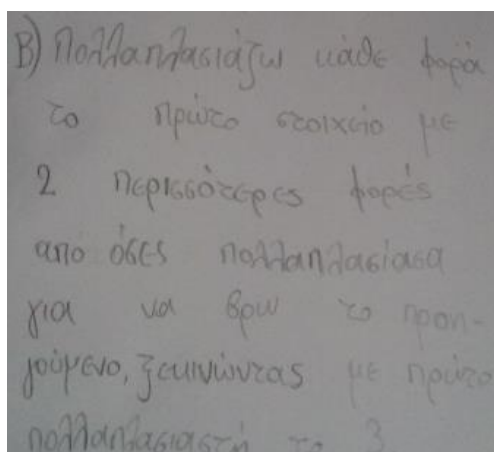 Β) Πολλαπλασιάζω κάθε φορά
το πρώτο στοιχείο με
2 περισσότερες φορές
από όσες πολλαπλασίασα
για να βρω το προη-
γούμενο, ξεκινώντας με πρώτο
πολλαπλασιαστή το 3